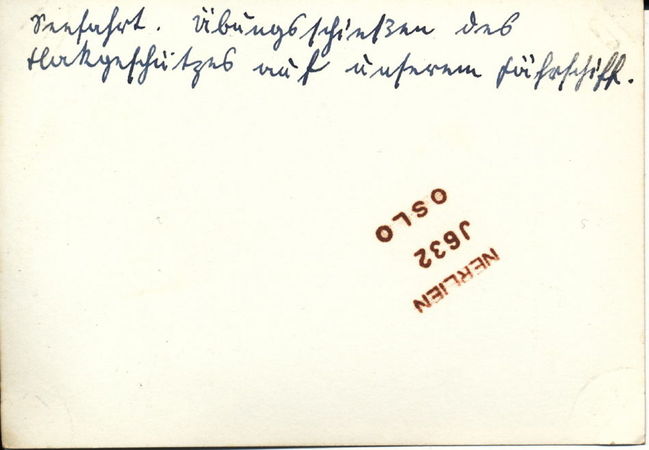 Seefahrt. Übungsschießen des
Flakgeschützes auf unserem Fährschiff.
NERLIEN
J632
OSLO